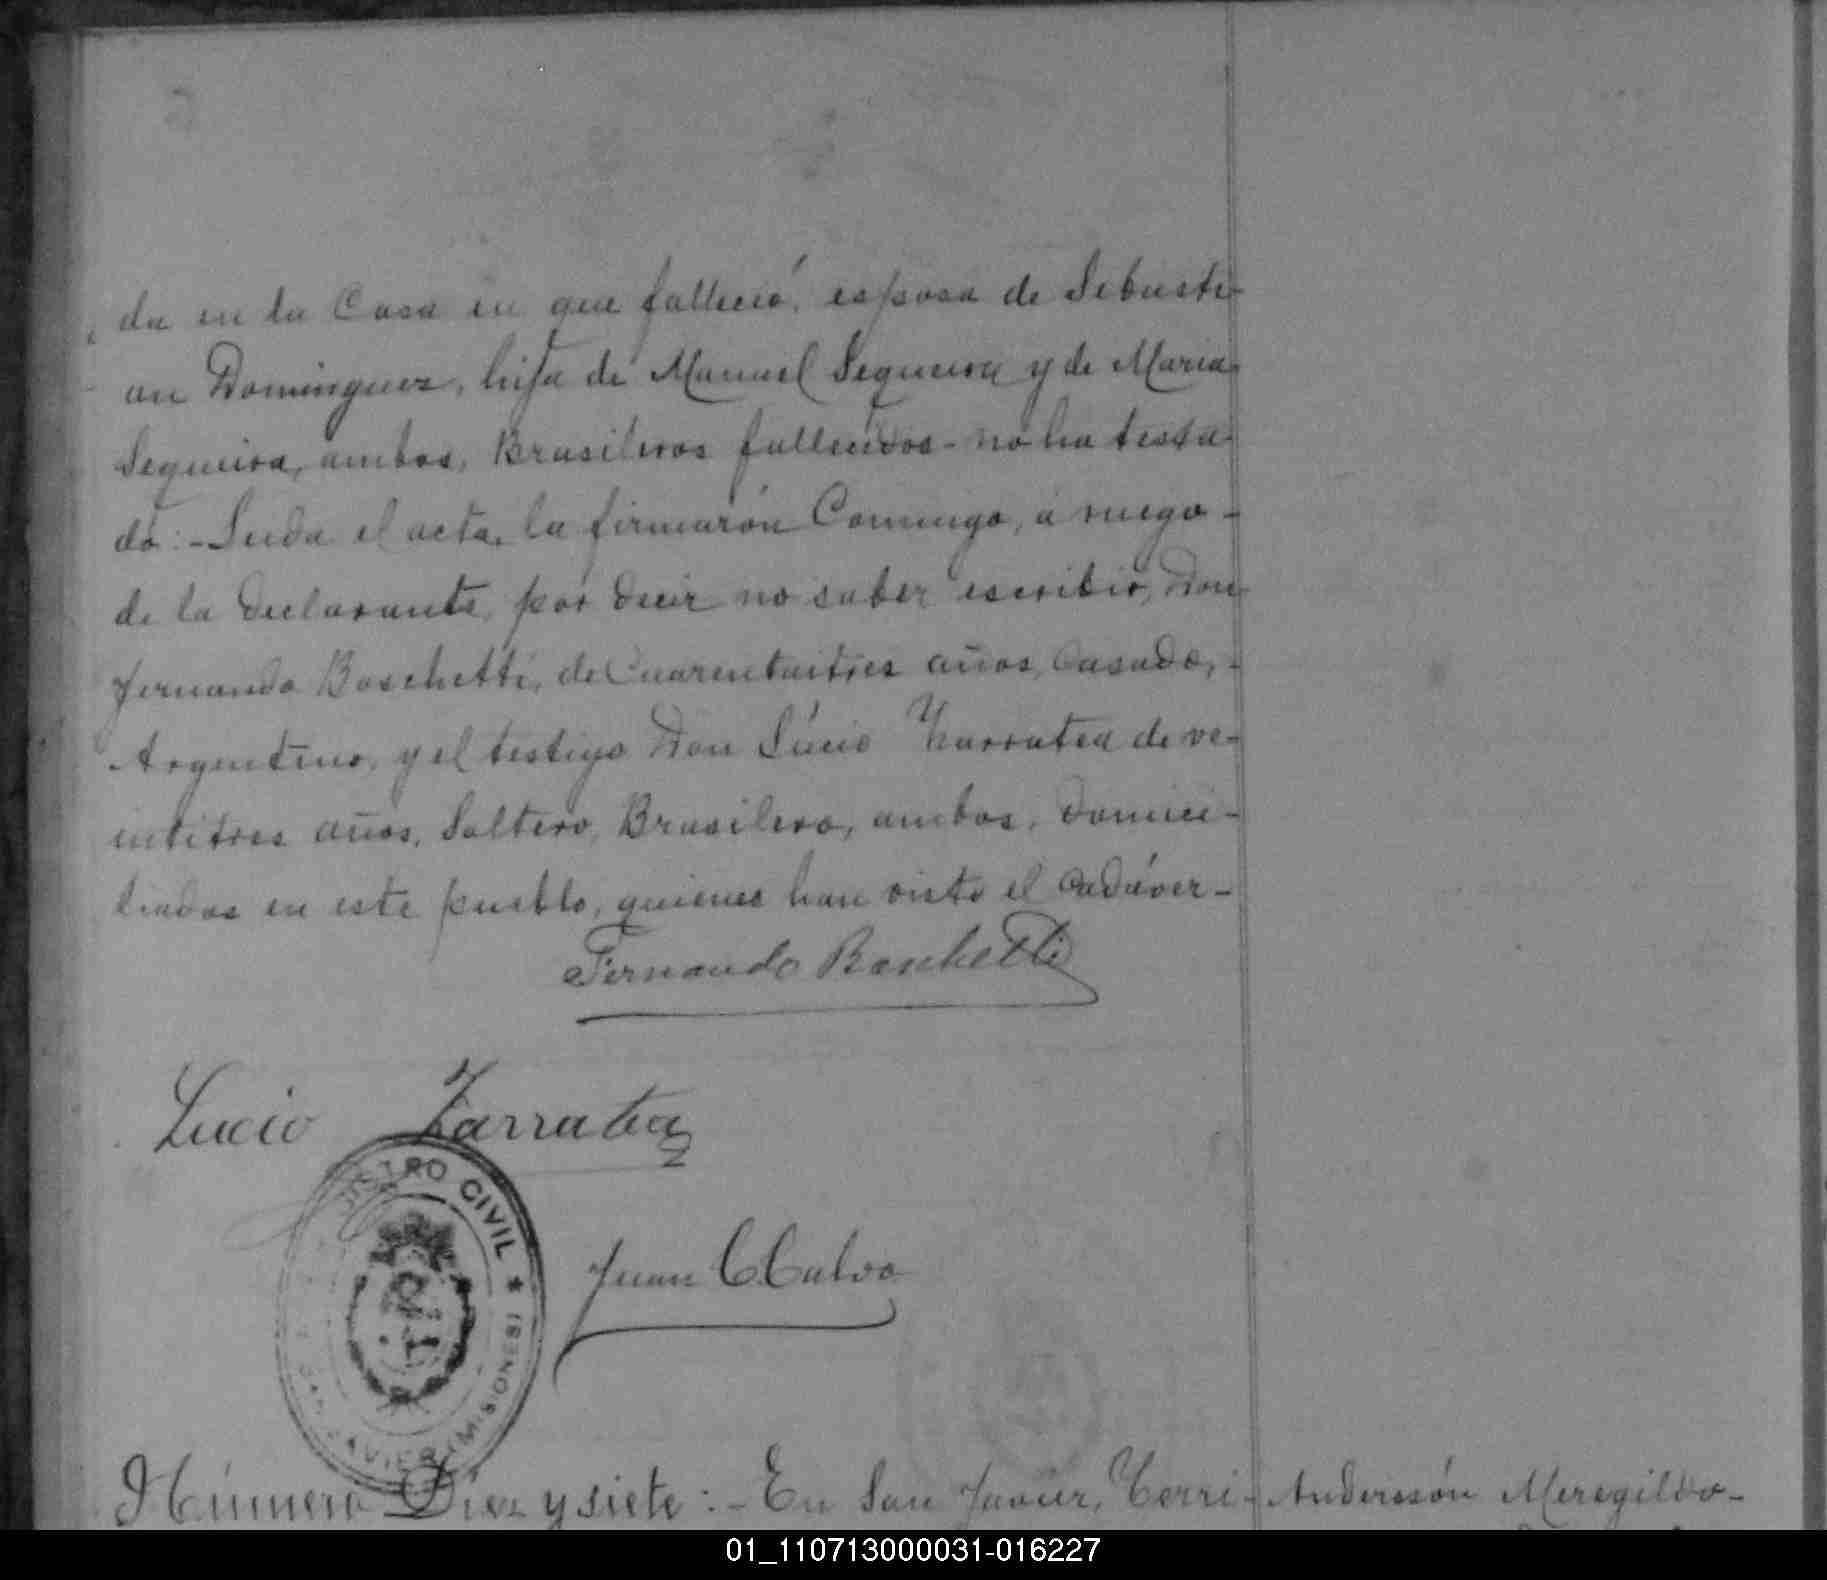 da en la Casa en que falleció, esposa de Sebasti-
an Dominguez, hija de Manuel Sequeira y de Maria
Sequeira, ambos, Brasileros fallecidos - no ha testa-
do:- Leida el acta, la firmarón Comingo, á ruego -
de la declarante, por decir no saber escribir, Don
Fernando Boschetti, de Cuarentaitres años, Casado, -
Argentino, y el testigo Don Lúcio Zarratea de ve-
intitres años, Soltero, Brasilero, ambos, domici-
liados en este pueblo, quienes han visto el Cadáver -
Fernando Boschetti
Lucio Zarratea
REGISTRO CIVIL ★
SAN JAVIER (MISIONES)
Juan C. Calvo
Número Diez y siete:- En San Javier, Terri-
Anderssón Meregildo-
01_110713000031-016227